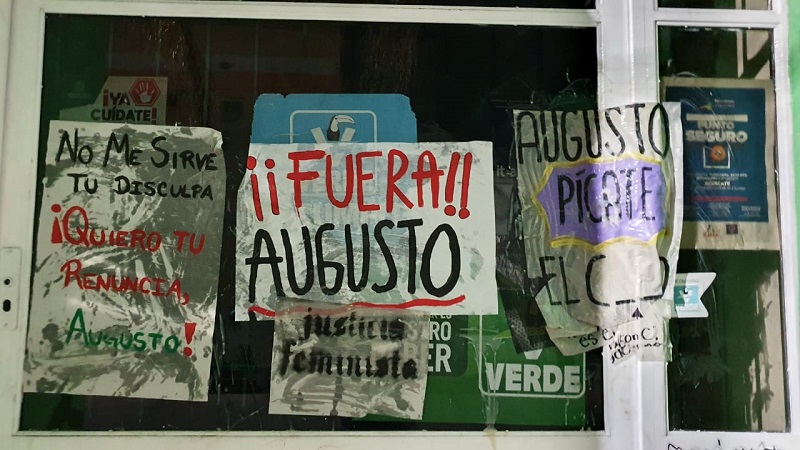 ¡YA
CUÍDATE!
NO ME SIRVE
TU DISCULPA
¡QUIERO TU
RENUNCIA,
AUGUSTO!
¡¡FUERA!!
AUGUSTO
justicia
feminista
BER
VERDE
AUGUSTO
PÍCATE
EL C__O
PUNTO
SEGURO